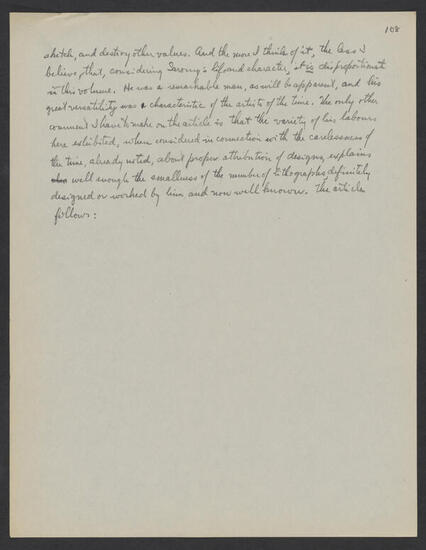 108
sketch, and destroy other values. And the more I think of it, the less I
believe, that, considering Sarony's life and character, it is disproportionate
in this volume. He was a remarkable man, as will be apparent, and his
great versatility was a characteristic of the artists of the time. The only other
comment I have to make on the article is that the variety of his labours
here exhibited, when considered in connection with the carelessness of
the time, already noted, about proper attribution of designs, explains
well enough the smallness of the number of lithographs definitely
designed or worked by him and now well known. The article
follows: